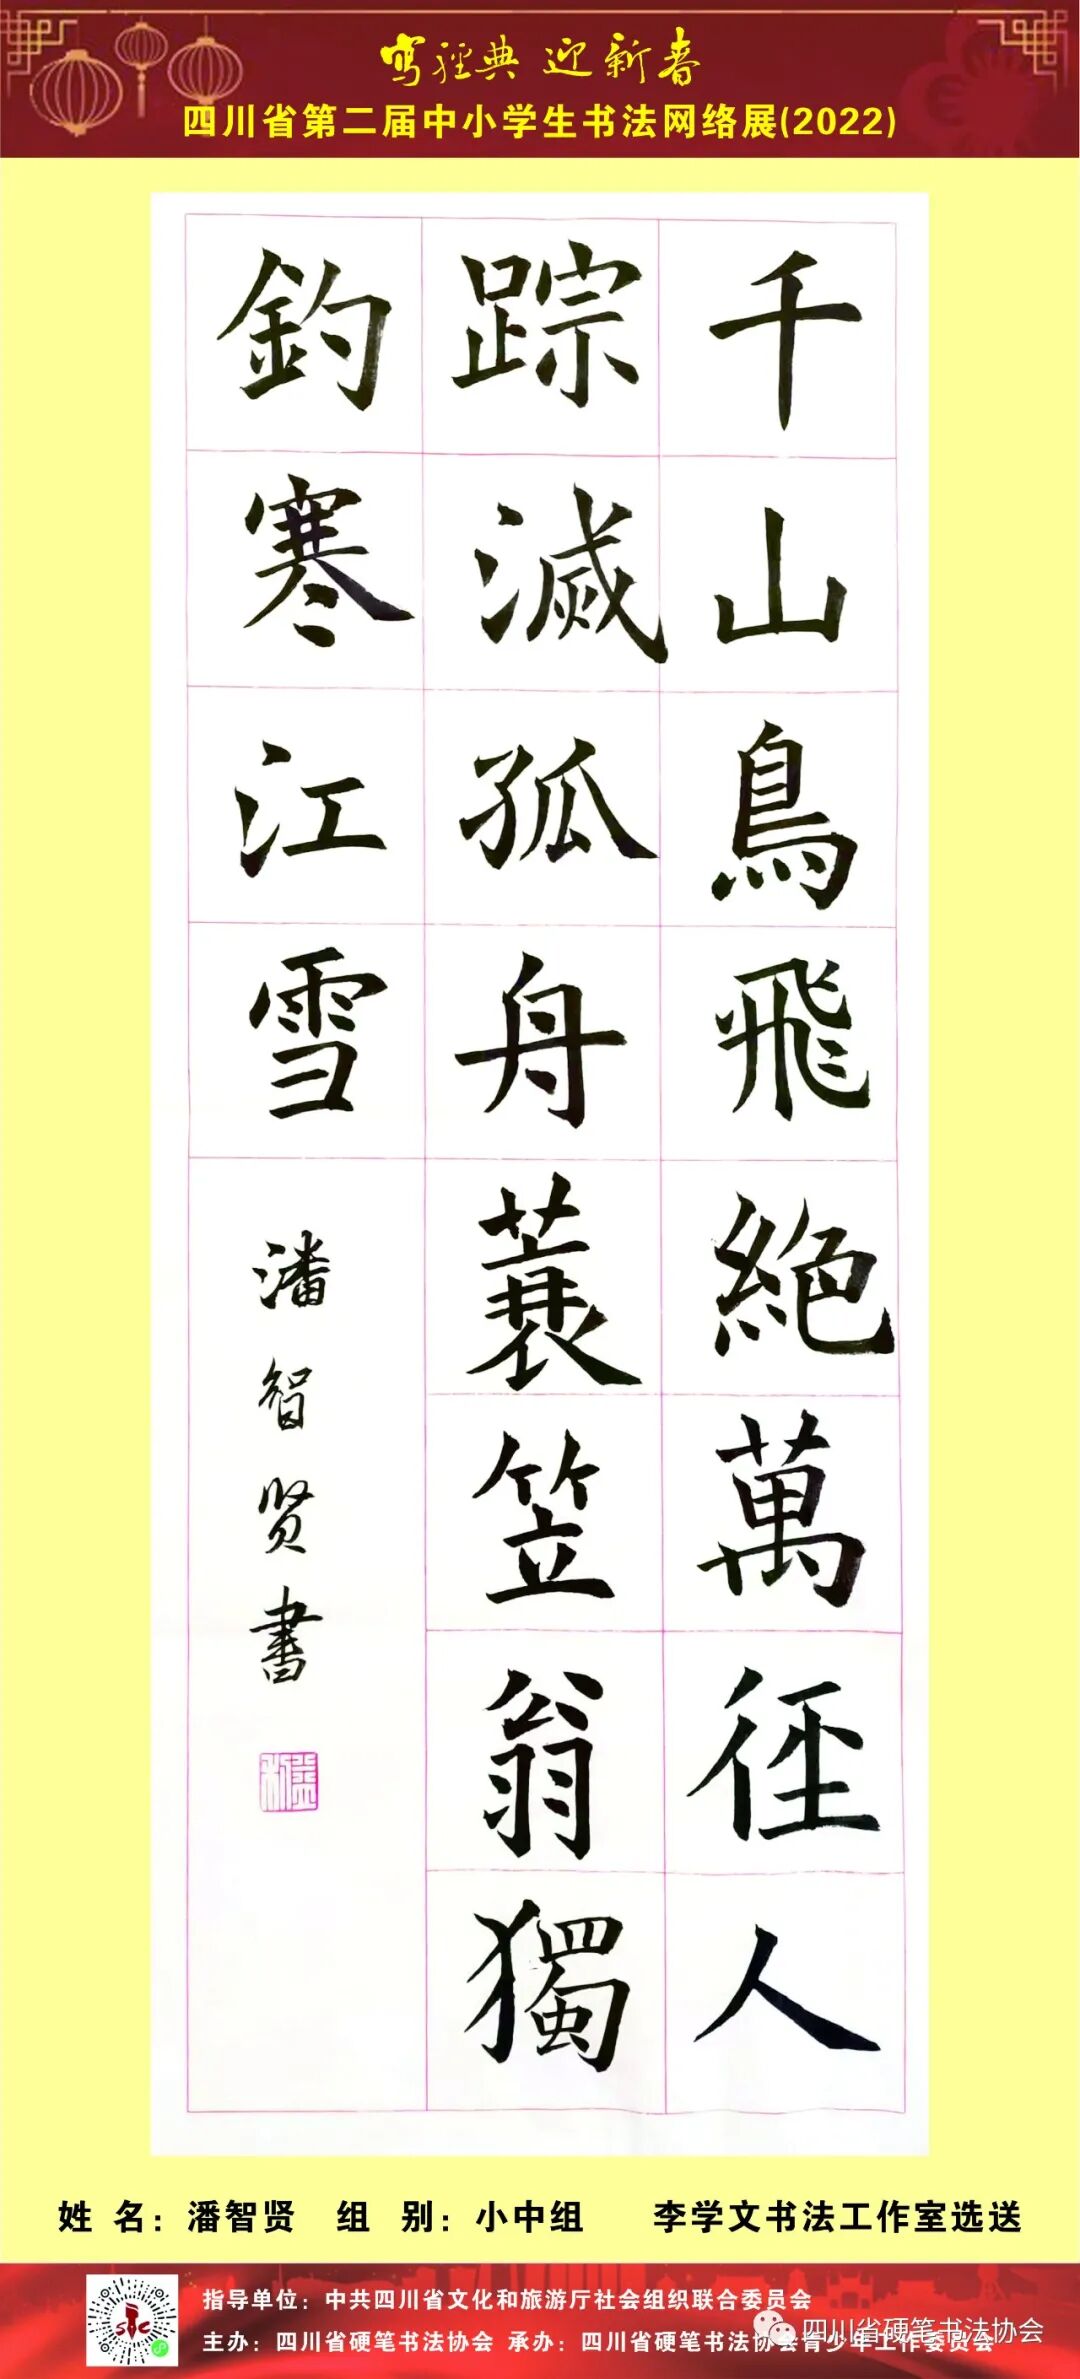 写经典 迎新春
四川省第二届中小学生书法网络展(2022)
千山鳥飛絶萬径人
踪滅孤舟蓑笠翁獨
釣寒江雪
潘智贤書
姓 名：潘智贤 组 别：小中组 李学文书法工作室选送
指导单位：中共四川省文化和旅游厅社会组织联合委员会
主办：四川省硬笔书法协会 承办：四川省硬笔书法协会青少年工作委员会
四川省硬笔书法协会